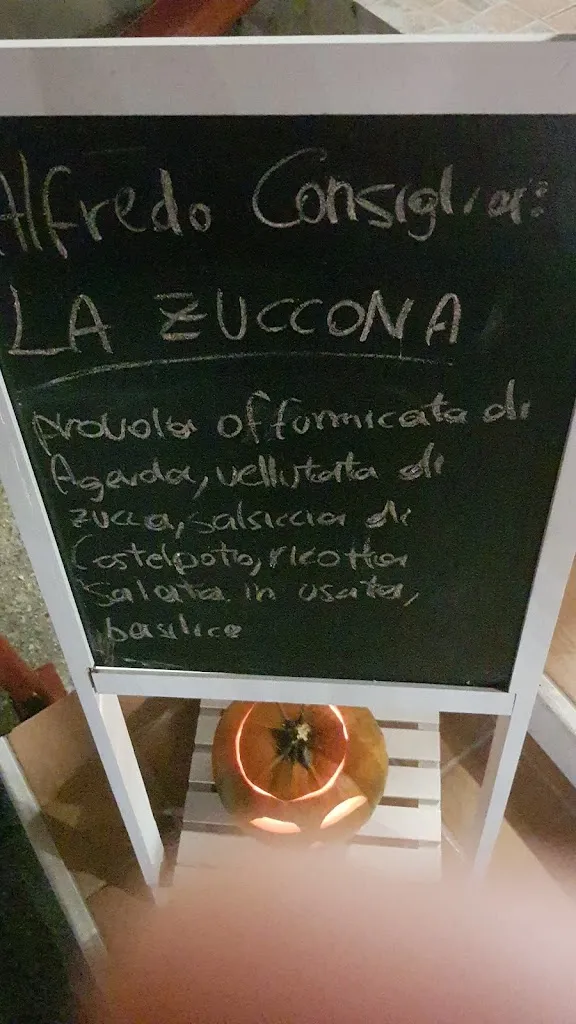 Alfredo Consiglia:
LA ZUCCONA
provola affumicata di
Agerola, vellutata di
zucca, salsiccia di
Castelpoto, ricotta
salata in uscita,
basilico